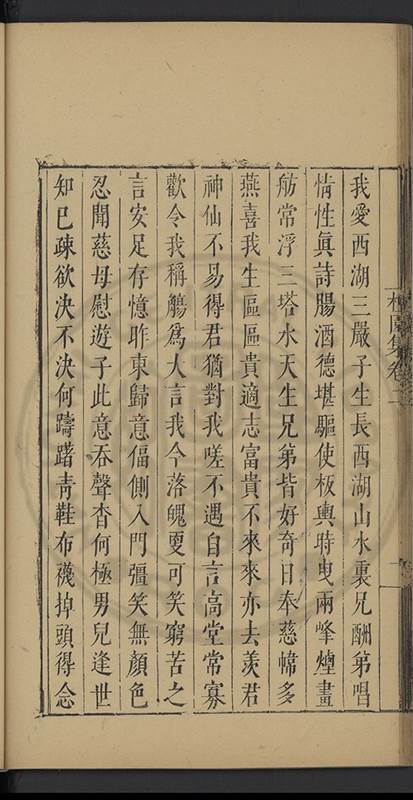 我愛西湖三嚴子生長西湖山水裏兄酬弟唱
情性眞詩腸酒德堪驅使板輿時曳兩峰煙畫
舫常浮三塔水天生兄弟皆好奇日奉慈幃多
燕喜我生區區貴適志富貴不來來亦去羨君
神仙不易得君猶對我嗟不遇自言高堂常寡
歡令我稱觴爲大言我今落魄更可笑窮苦之
言安足存憶昨東歸意偪側入門彊笑無顏色
忍聞慈母慰遊子此意吞聲杳何極男兒逢世
知已疎欲決不決何躊躇靑鞋布襪掉頭得念